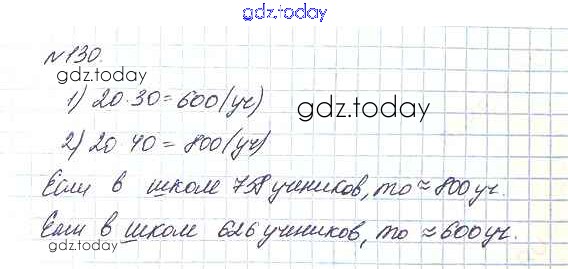 gdz.today
№130.
gdz.today
1) 20·30=600(уч)
gdz.today
2) 20 40=800(уч)
Если в школе 758 учеников, то ≈800уч.
Если в школе 626 учеников, то ≈600уч.
gdz.today